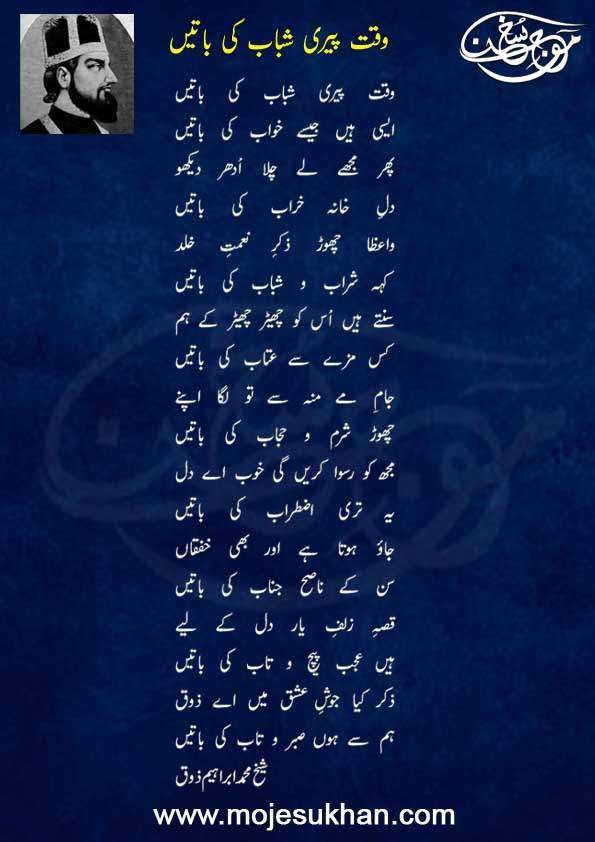 موج سخن
وقت پیری شباب کی باتیں
وقت پیری شباب کی باتیں
ایسی ہیں جیسے خواب کی باتیں
پھر مجھے لے چلا اُدھر دیکھو
دلِ خانہ خراب کی باتیں
واعظا چھوڑ ذکرِ نعمتِ خلد
کہہ شراب و شباب کی باتیں
سنتے ہیں اُس کو چھیڑ چھیڑ کے ہم
کس مزے سے عتاب کی باتیں
جامِ مے منہ سے تو لگا اپنے
چھوڑ شرم و حجاب کی باتیں
مجھ کو رسوا کریں گی خوب اے دل
یہ تری اضطراب کی باتیں
جاؤ ہوتا ہے اور بھی خفقاں
سن کے ناصح جناب کی باتیں
قصہِ زلفِ یار دل کے لیے
ہیں عجب پیچ و تاب کی باتیں
ذکر کیا جوشِ عشق میں اے ذوق
ہم سے ہوں صبر و تاب کی باتیں
شیخ محمد ابراہیم ذوق
www.mojesukhan.com